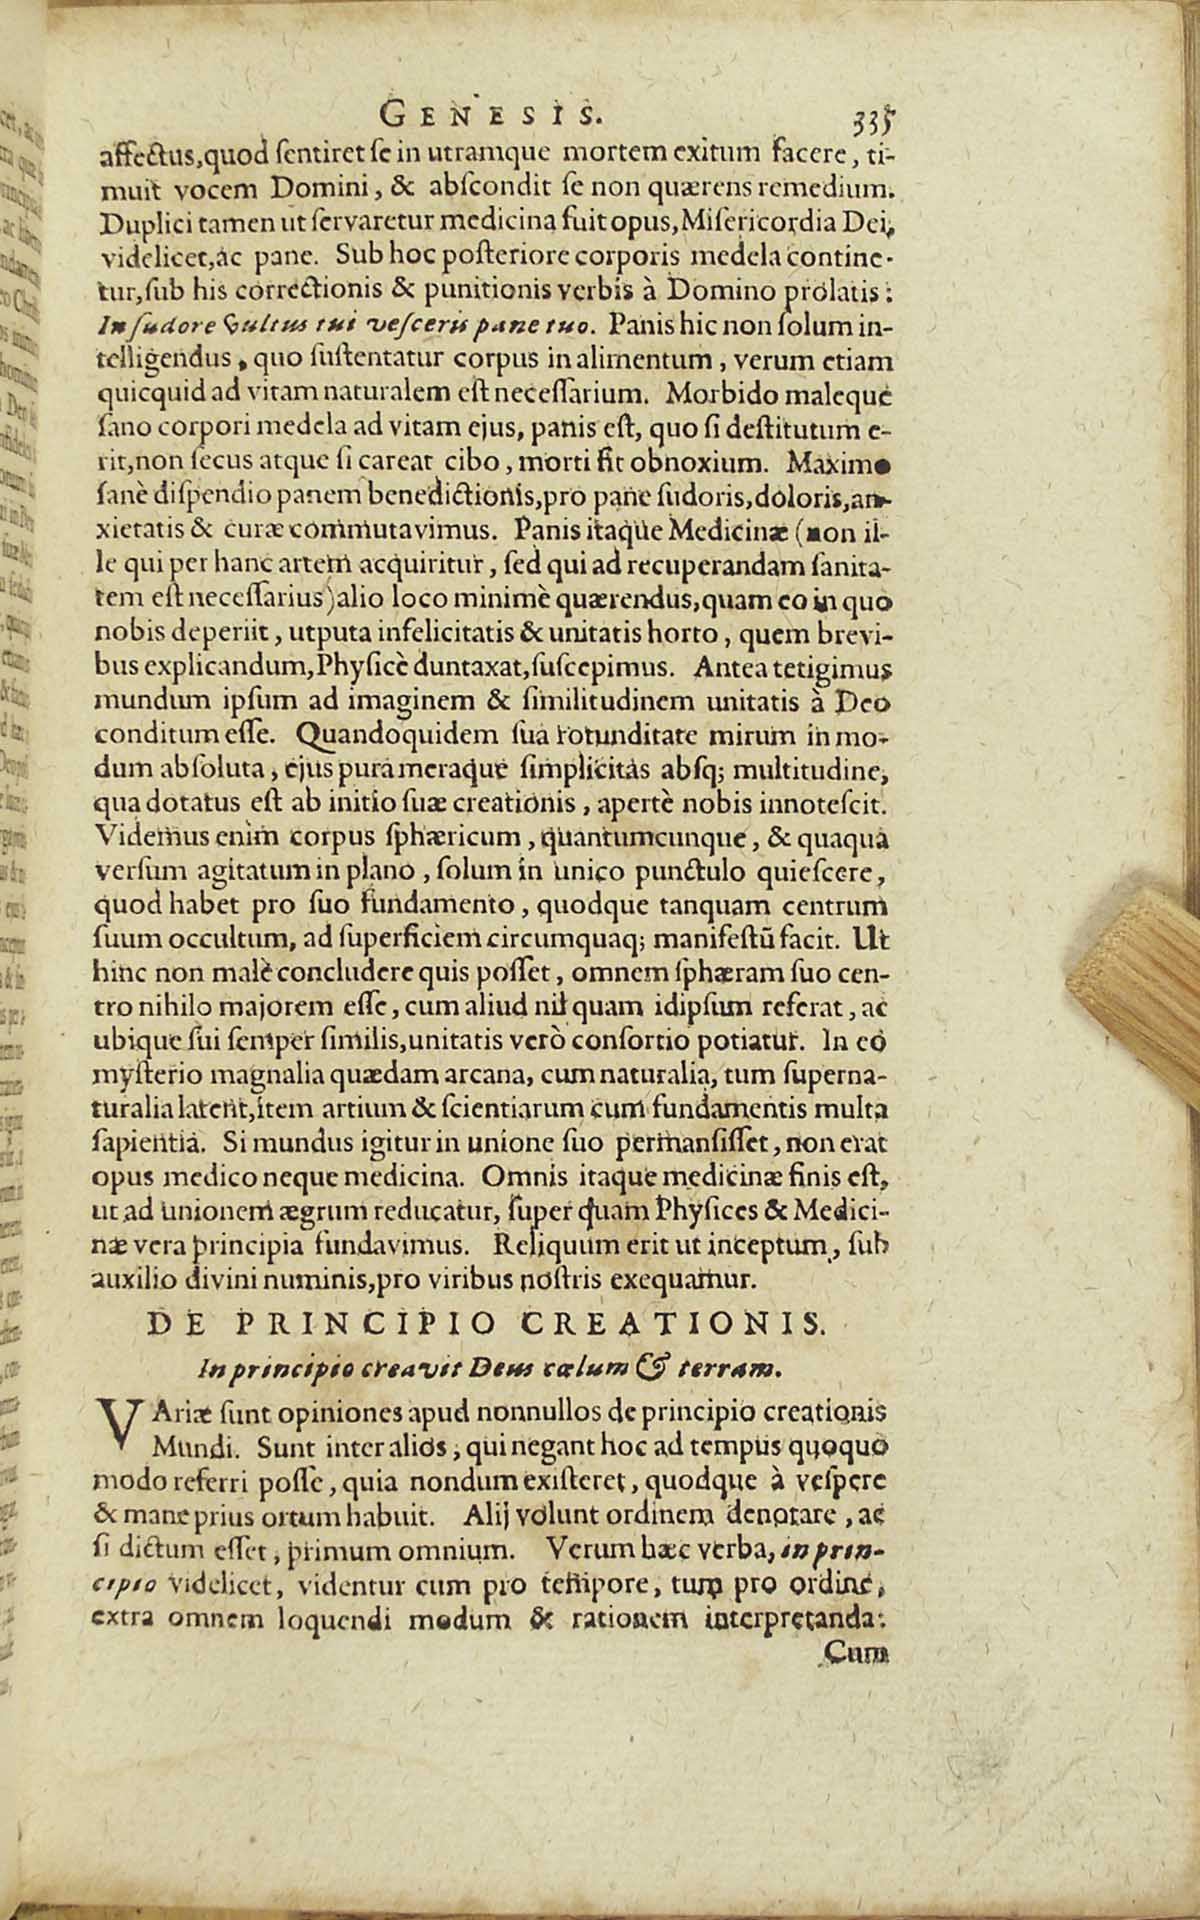 GENESIS. 335
affectus,quod ſentiret ſe in utramque mortem exitum facere, ti-
muit vocem Domini, & abſcondit ſe non quærens remedium.
Duplici tamen ut ſervaretur medicina fuit opus, Miſericordia Dei,
videlicet, ac pane. Sub hoc poſteriore corporis medela contine-
tur, ſub his correctionis & punitionis verbis à Domino prolatis:
In ſudore vultus tui veſceris pane tuo. Panis hic non ſolum in-
telligendus, quo ſuſtentatur corpus in alimentum, verum etiam
quicquid ad vitam naturalem eſt neceſſarium. Morbido maleque
ſano corpori medela ad vitam ejus, panis eſt, quo ſi deſtitutum e-
rit, non ſecus atque ſi careat cibo, morti fit obnoxium. Maximo
ſanè diſpendio panem benedictionis, pro pane ſudoris, doloris, an-
xietatis & curæ commutavimus. Panis itaque Medicinæ (non il-
le qui per hanc artem acquiritur, ſed qui ad recuperandam ſanita-
tem eſt neceſſarius) alio loco minimè quærendus, quam eo in quo
nobis deperiit, utputa infelicitatis & unitatis horto, quem brevi-
bus explicandum, Phyſicè duntaxat, ſuſcepimus. Antea tetigimus
mundum ipſum ad imaginem & ſimilitudinem unitatis à Deo
conditum eſſe. Quandoquidem ſua rotunditate mirum in mo-
dum abſoluta, ejus pura meraque ſimplicitas abſq; multitudine,
qua dotatus eſt ab initio ſuæ creationis, apertè nobis innoteſcit.
Videmus enim corpus ſphæricum, quantumcunque, & quaqua
verſum agitatum in plano, ſolum in unico punctulo quieſcere,
quod habet pro ſuo fundamento, quodque tanquam centrum
ſuum occultum, ad ſuperficiem circumquaq; manifeſtū facit. Ut
hinc non malè concludere quis poſſet, omnem ſphæram ſuo cen-
tro nihilo majorem eſſe, cum aliud nil quam idipſum referat, ac
ubique ſui ſemper ſimilis, unitatis verò conſortio potiatur. In eo
myſterio magnalia quædam arcana, cum naturalia, tum ſuperna-
turalia latent, item artium & ſcientiarum cum fundamentis multa
ſapientia. Si mundus igitur in unione ſuo permanſiſſet, non erat
opus medico neque medicina. Omnis itaque medicinæ finis eſt,
ut ad unionem ægrum reducatur, ſuper quam Phyſices & Medici-
næ vera principia fundavimus. Reliquum erit ut inceptum, ſub
auxilio divini numinis, pro viribus noſtris exequamur.
DE PRINCIPIO CREATIONIS.
In principio creavit Deus cœlum & terram.
VAriæ ſunt opiniones apud nonnullos de principio creationis
Mundi. Sunt inter alios, qui negant hoc ad tempus quoquo
modo referri poſſe, quia nondum exiſteret, quodque à veſpere
& mane prius ortum habuit. Alij volunt ordinem denotare, ac
ſi dictum eſſet, primum omnium. Verum hæc verba, in prin-
cipio videlicet, videntur cum pro tempore, tum pro ordine,
extra omnem loquendi modum & rationem interpretanda:
Cum